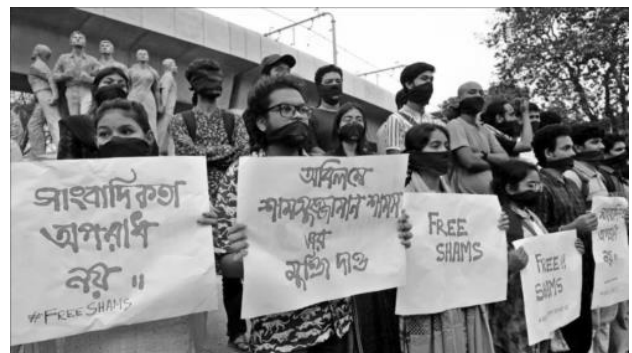 সাংবাদিকতা
অপরাধ
নয় ॥
#FREESHAMS
অবিলম্বে
শামসুজ্জামান শামস
এর
মুক্তি দাও
FREE
SHAMS
FREE!!
SHAMS